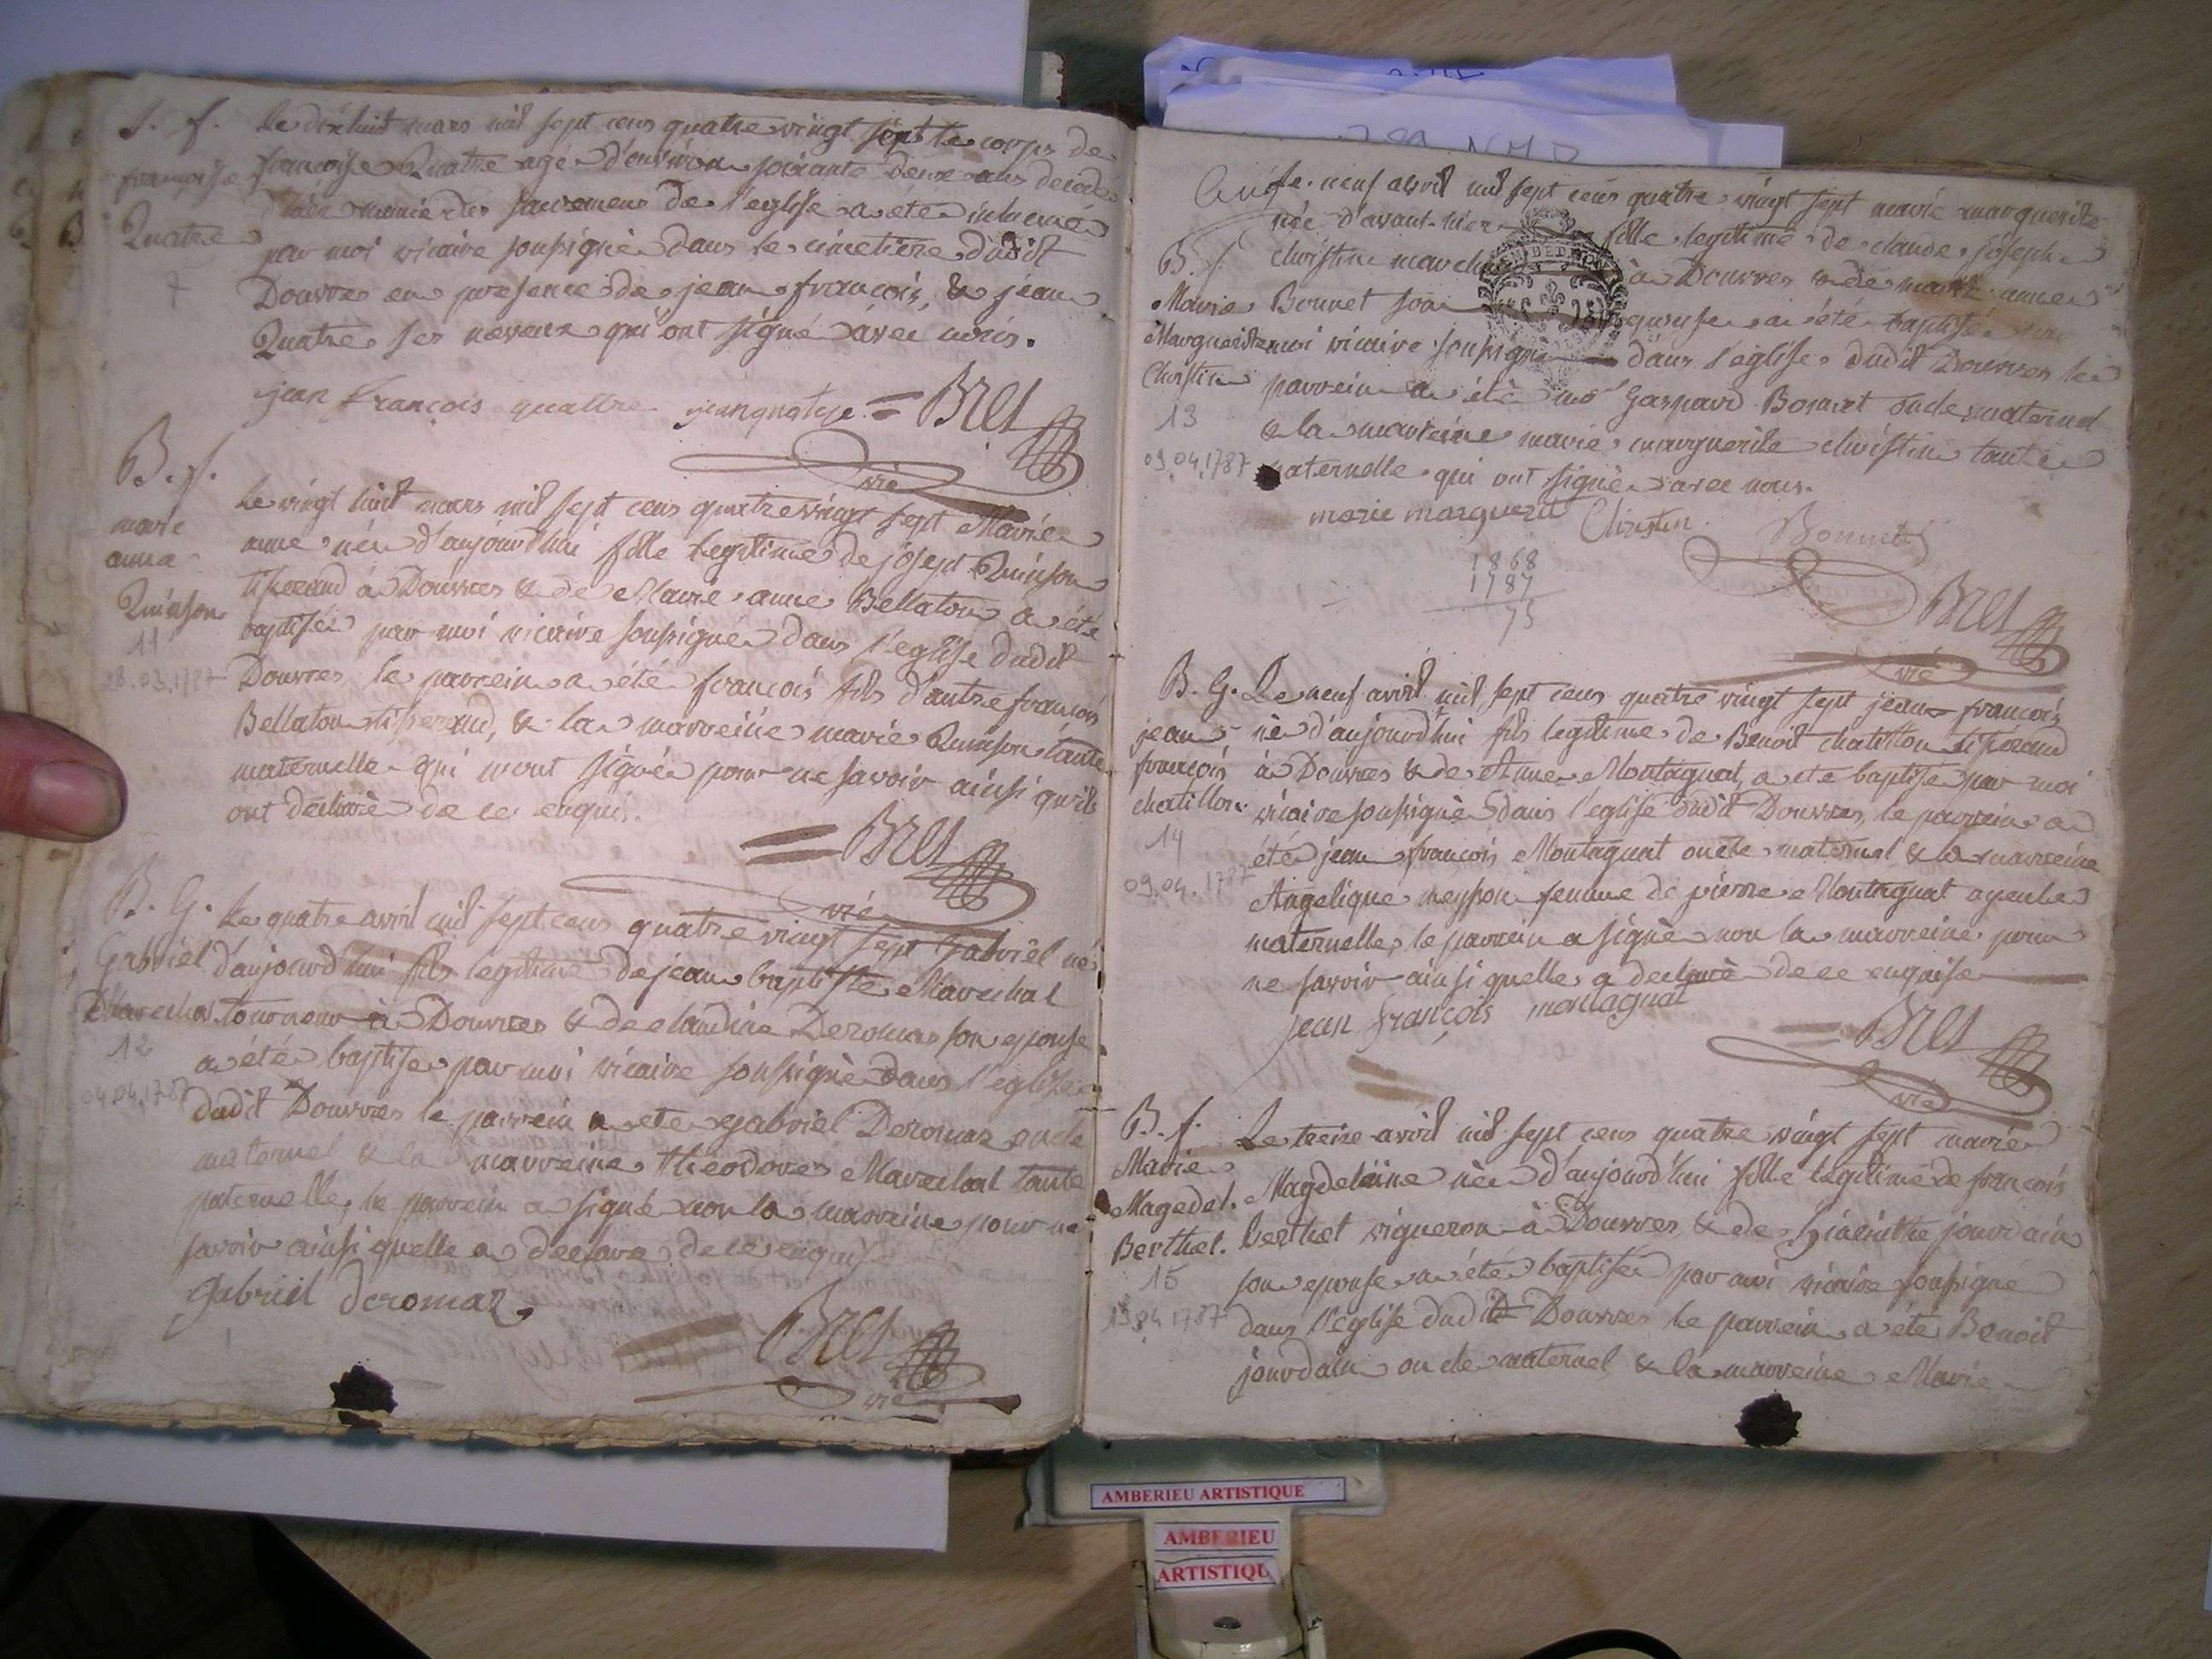 S. f.
françoise
Quatre
7
Le dixhuit mars mil sept cens quatre vingt sept le corps de
françoise Quatre agé d'environ soixante deux ans decedé
munie des sacremens de l'eglise a été inhumé
par moi vicaire soussigné dans le cimetiere dudit
Douvres en presence de jean françois, & jean
Quatre ses neveux qui ont signé avec nous.
jean françois quattre = Bret
vic
B. f.
marie
anne
Quinson
11
28.03.1787
Le vingt huit mars mil sept cens quatre vingt sept Marie
anne née d'aujourd'hui fille legitime de josept Quinson
tisserand à Douvres & de Marie anne Bellaton a été
baptisée par moi vicaire soussigné dans l'eglise dudit
Douvres, le parrein a été françois fils d'autre françois
Bellaton tisserand, & la marreine marie Quinson tante
maternelle qui n'ont signé pour ne savoir ainsi quils
ont declaré de ce enquis.
= Bret
vic
B. G.
Gabriel
Marechal
12
04.04.1787
Le quatre avril mil sept cens quatre vingt sept Gabriel né
d'aujourd'hui fils legitime de jean baptiste Marechal
tourneur à Douvres & de claudine Deromas son epouse
a été baptisé par moi vicaire soussigné dans l'eglise
dudit Douvres le parrein a été gabriel Deromaz oncle
maternel & la marreine theodore Marechal tante
paternelle, le parrein a signé non la marreine pour ne
savoir ainsi quelle a declaré de ce enquise
Gabriel deromaz
Bret
vic
B. f.
Marie
Marguerite
Christin
13
09.04.1787
Le neuf avril mil sept cens quatre vingt sept marie marguerite
née d'avant-hier fille legitime de claude joseph
christin à Douvres & de marie anne
Bonnet son epouse a été baptisé par
moi vicaire soussigné dans l'eglise dudit Douvres le
parrein a été Gaspard Bonnet oncle maternel
& la marreine marie marguerite christin tante
paternelle qui ont signé avec nous.
marie marguerit Christin Bonnet
1868
1787
75
Bret
vic
B. G.
jean
françois
chatillon
14
09.04.1787
Le neuf avril mil sept cens quatre vingt sept jean françois
né d'aujourd'hui fils legitime de Benoit chatillon tisserand
à Douvres & de Anne Montagnat, a été baptisé par moi
vicaire soussigné dans l'eglise dudit Douvres, le parrein a
été jean françois Montagnat oncle maternel & la marreine
Angelique meysson femme de pierre Montagnat ayeule
maternelle, le parrein a signé non la marreine pour
ne savoir ainsi quelle a declaré de ce enquise
jean françois montagnat
= Bret
vic
B. f.
Marie
Magedel.
Berthet.
15
13.04.1787
Le treize avril mil sept cens quatre vingt sept marie
Magdeleine née d'aujourd'hui fille legitime de françois
berthet vigneron à Douvres & de hiacinthe jourdain
son epouse a été baptisée par moi vicaire soussigné
dans l'eglise dudit Douvres le parrein a été Benoit
jourdain oncle maternel, & la marreine Marie
AMBERIEU ARTISTIQUE
AMBERIEU
ARTISTIQU